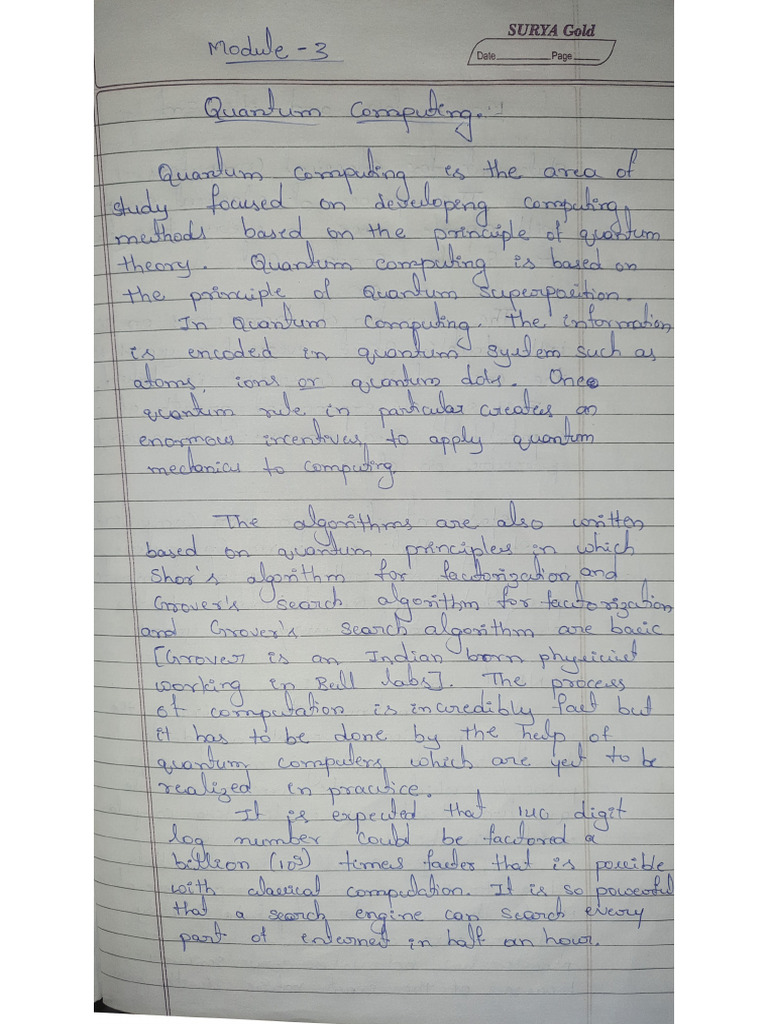 SURYA Gold
Module - 3
Date Page
Quantum Computing.
Quantum computing is the area of
study focused on developeng computing
methods based on the principle of quantum
theory. Quantum computing is based on
the principle of Quantum superposition.
In Quantum Computing. the information
is encoded in quantum system such as
atoms, ions or quantum dots. One
quantum rule in particular creates an
enormous incentives to apply quantum
mechanics to computing.
The algorithms are also written
based on quantum principles in which
Shor's algorithm for factorization and
Grover's search algorithm for factorization
and Grover's search algorithm are basic
[Grover is an Indian born physicist
working in Bell labs]. The process
of computation is incredibly fast but
it has to be done by the help of
quantum computers which are yet to be
realized in practice.
It is expected that 140 digit
log number could be factored a
billion (10⁹) times faster that is possible
with classical computation. It is so powerful
that a search engine can search every
part of internet in half an hour.